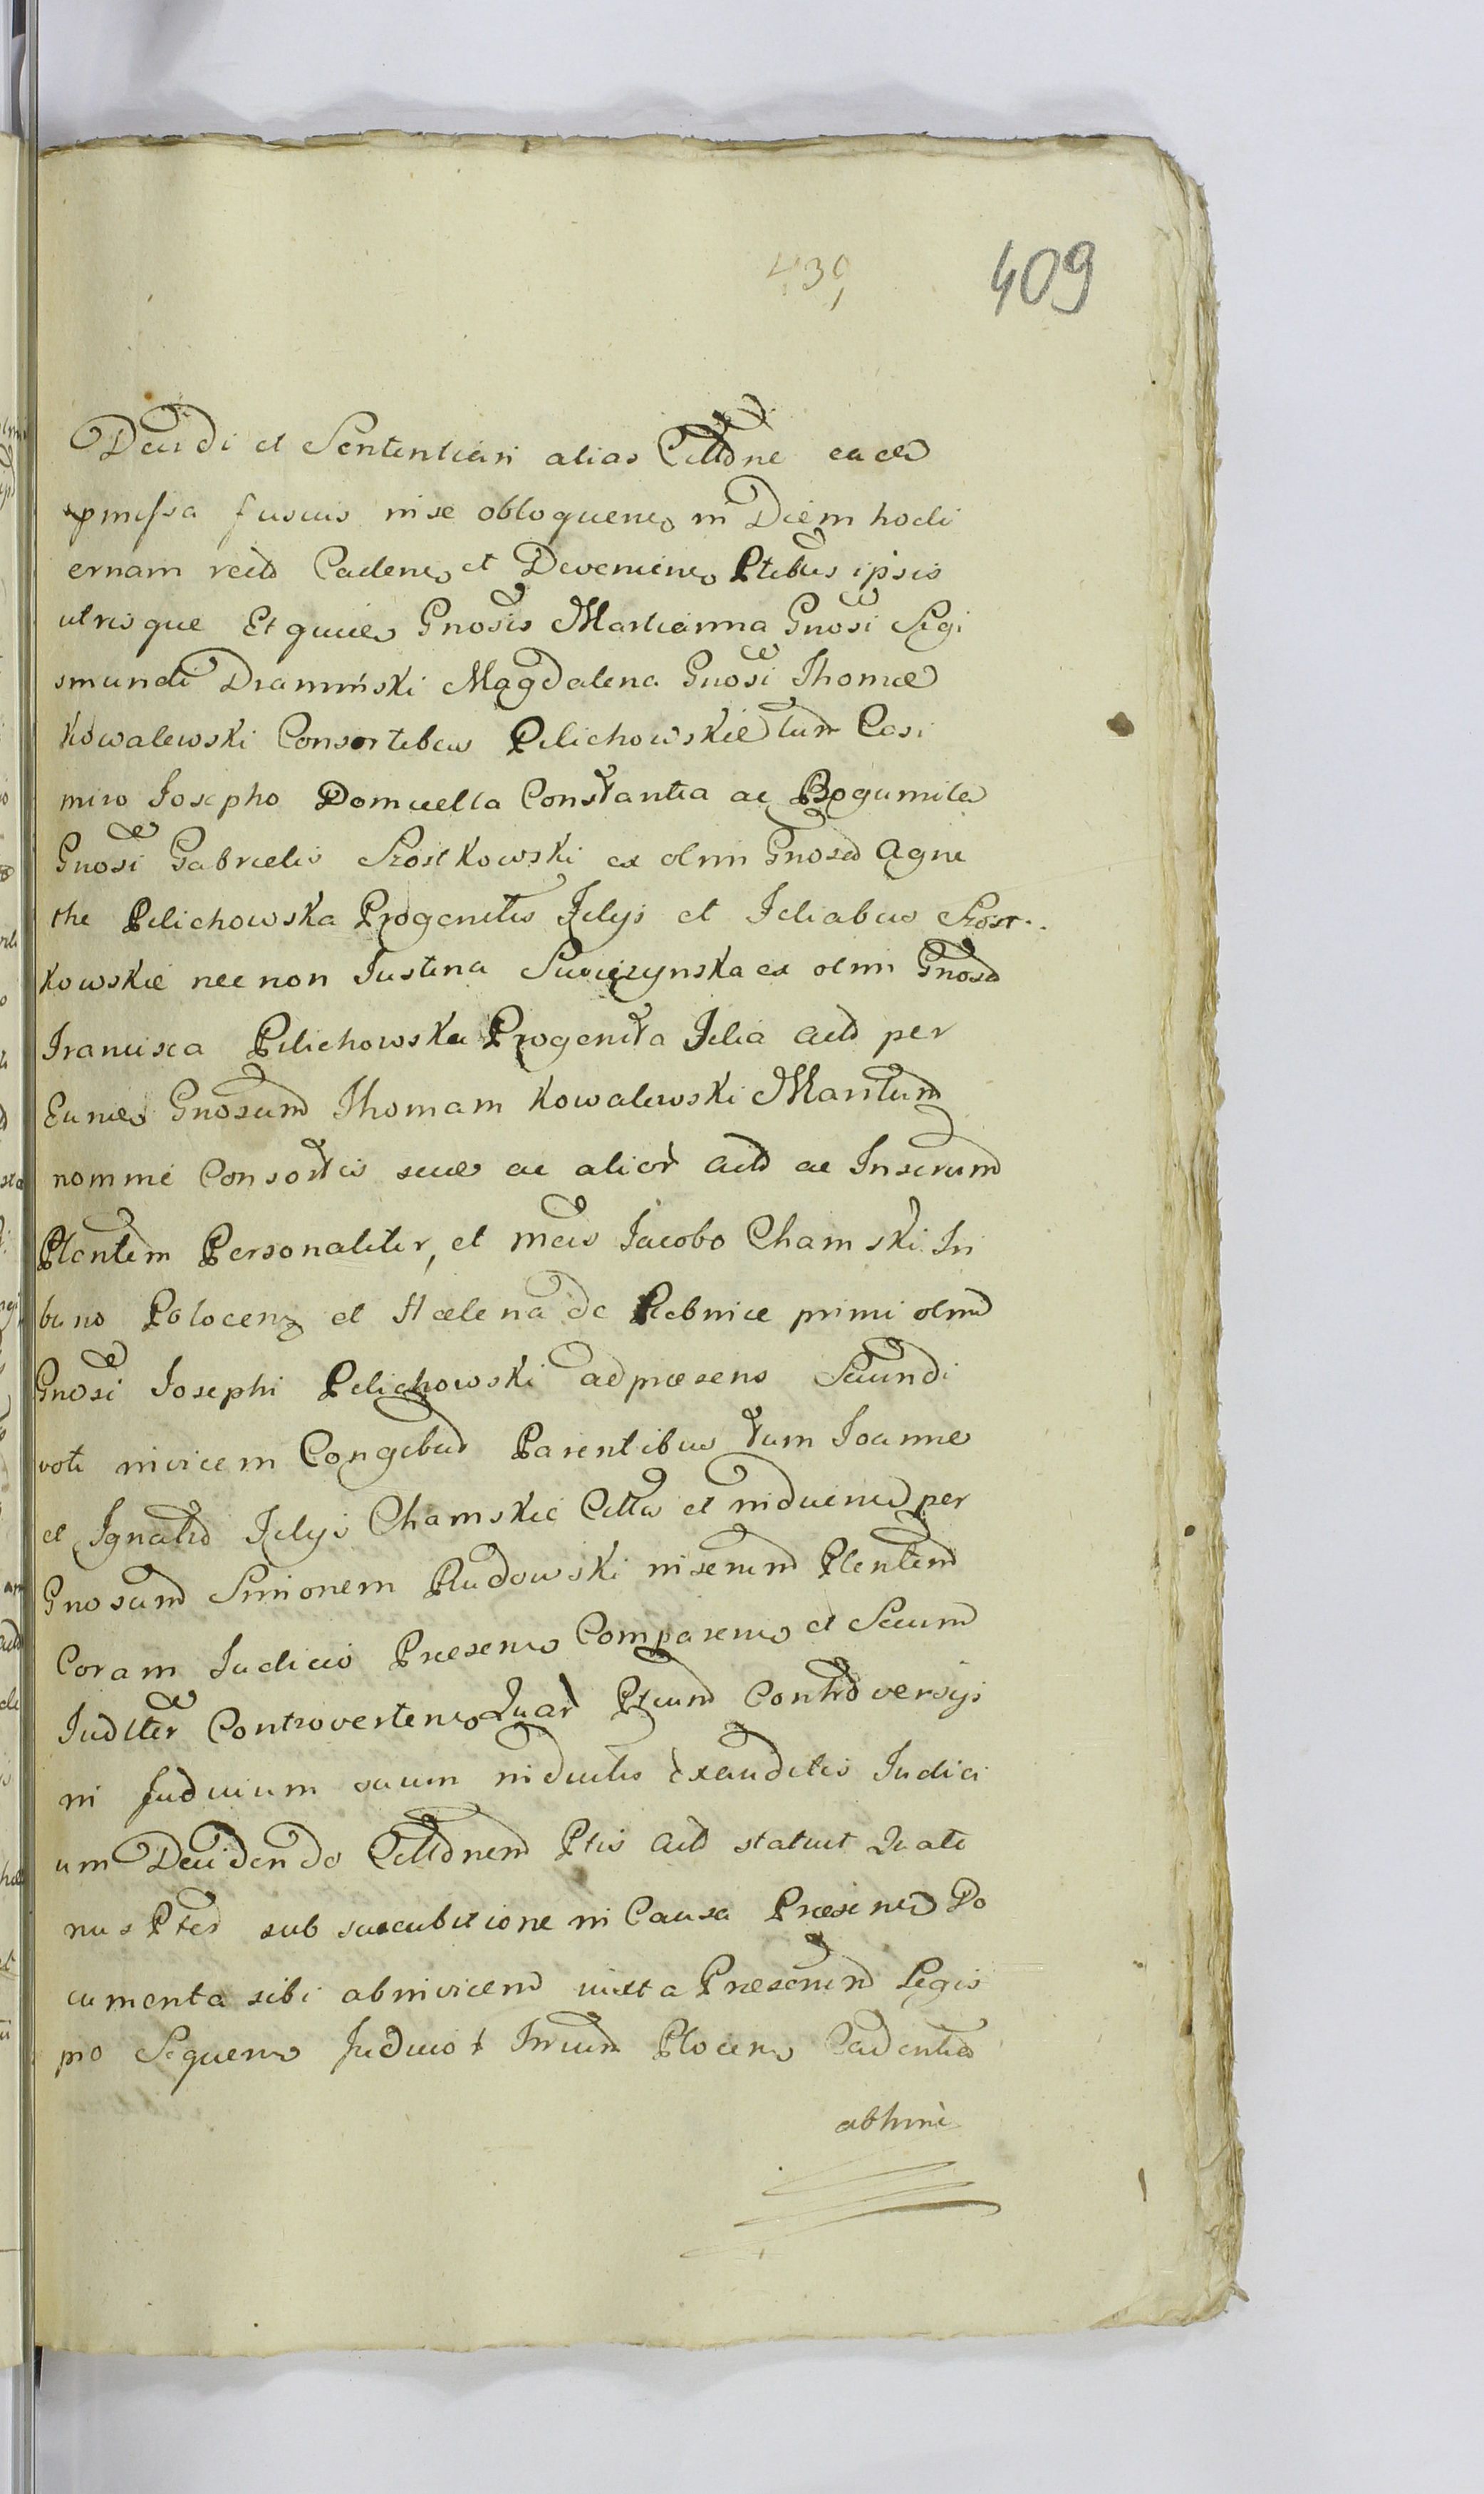 439
409
Decidi et Sententiari alias Cittõne ea ea
pmissa fusius in se obloquens in Diem hodi
ernam recto Cadens et Deveniens Ptibus ipsis
utrisque Et quidem Gnosis Martianna Gnosi Sigi
smundi Dramiński Magdalena Gnosi Thomæ
Kowalewski Consortibus Pilichowskie tum Casi
miro Josepho Domicella Constantia ac Bogumila
Gnosi Gabrielis Szostkowski ex olim Gnosa Agne
the Pilichowska Progenitis Filijs et Filiabus Szost
kowskie nec non Justina Swiezynska ex olim Gnosa
Francisca Pilichowska Progenita Filia Acto per
Eund Gnosum Thomam Kowalewski Maritum
nomine Consortis suæ ac alior Acto ac Inserum
Plentem Personaliter, et Mcis Jacobo Chamski Tri
buno Polocens et Hælena de Rebnice primi olim
Gnosi Josephi Pilichowski ad præsens Secundi
voti invicem Congibus Parentibus tum Joanne
et Ignatio Filijs Chamskie Cittis et inducend per
Gnosum Simonem Rudowski inserum Plentem
Coram Judicio Præsens Comparens et Secum
Judlter Controvertens Quar Ptium Controversijs
in Judicium suum inductis Exauditis Judici
um Decidendo Cittõnem Ptis Acto statuit Quate
nus Ptes sub succubitione in Causa Præsenti Do
cumenta sibi abinvicem iuxta Præscriptum Legis
pro Sequens Judicior Trium Plocens Cadentia
abhinc